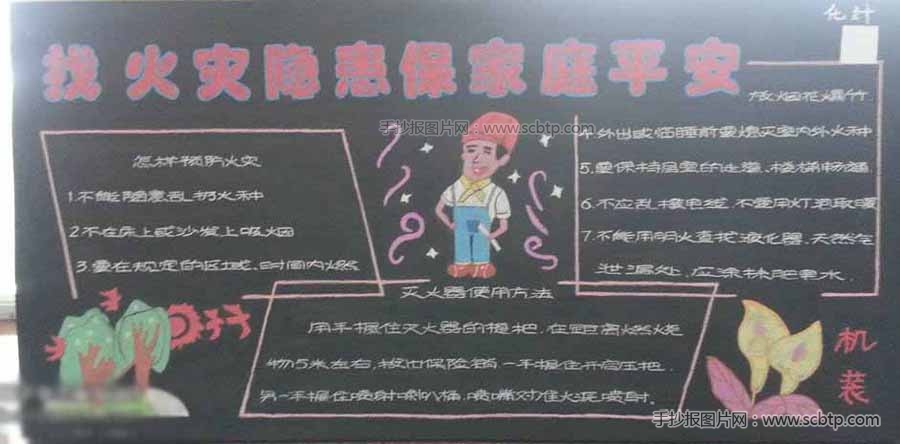 化计
找火灾隐患保家庭平安
手抄报图片网：www.scbtp.com
怎样预防火灾
1.不能随意乱扔火种
2.不在床上或沙发上吸烟
3.要在规定的区域、时间内燃
放烟花爆竹
4.外出或临睡前要熄灭室内外火种
5.要保持居室的走道、楼梯畅通
6.不应乱接电线.不要用灯泡取暖
7.不能用明火查找液化器、天然气
泄漏处.应涂抹肥皂水.
灭火器使用方法
用手握住灭火器的提把.在距离燃烧
物5米左右,拔出保险销.一手握住开启压把.
另一手握住喷射喇叭桶,喷嘴对住火砸喷射.
机装
手抄报图片网：www.scbtp.com